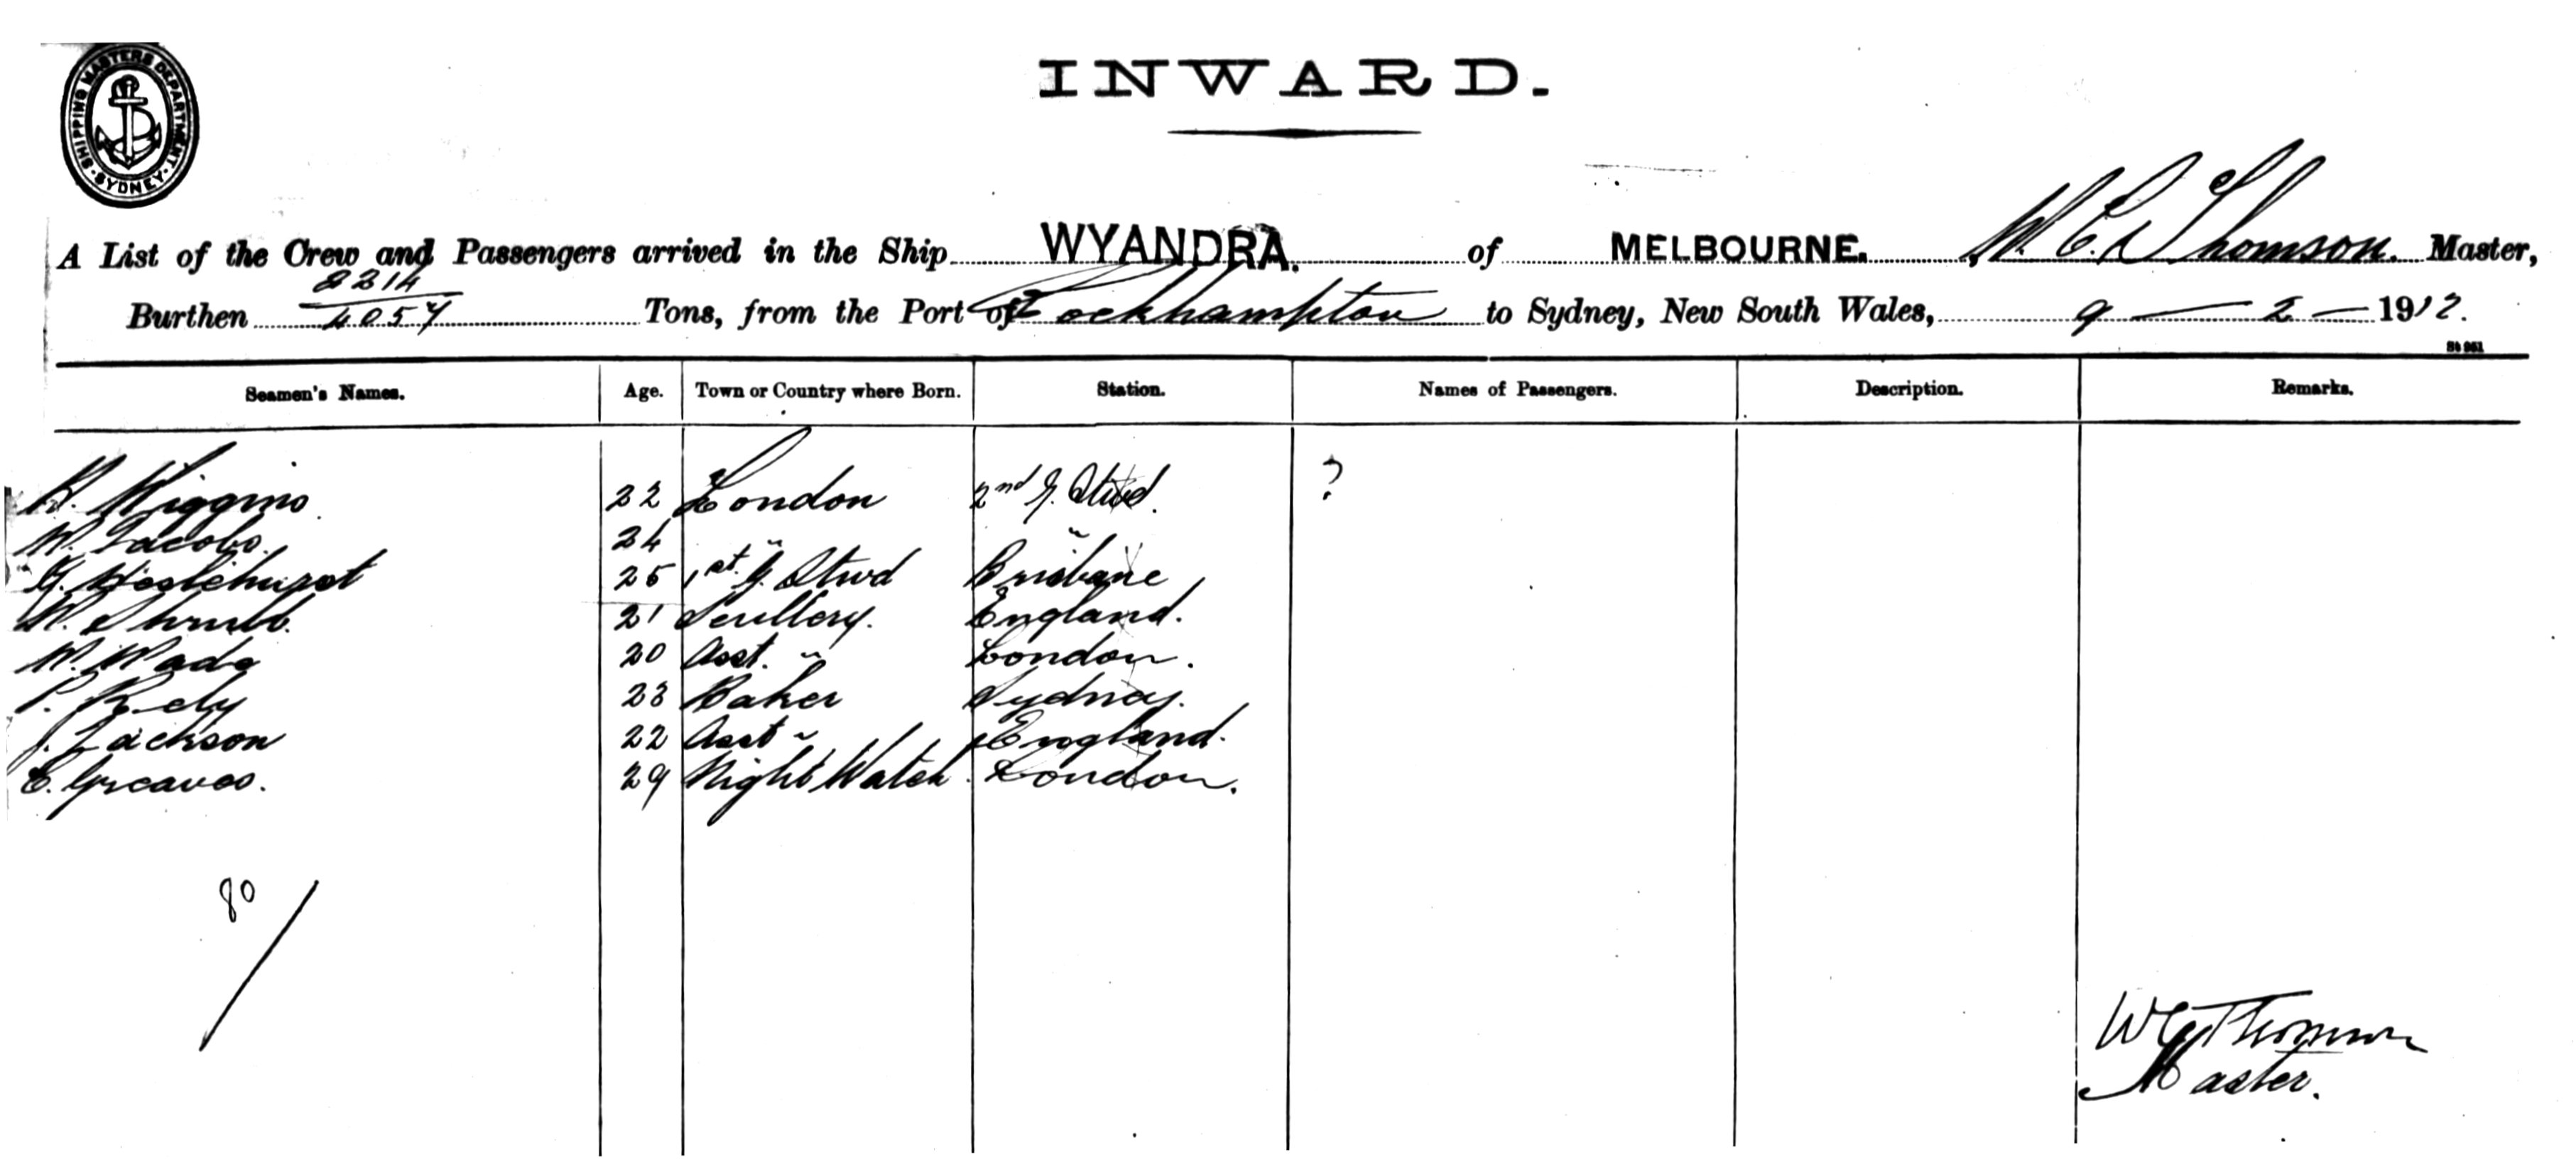 SHIPPING MASTERS DEPARTMENT · SYDNEY ·
INWARD.
A List of the Crew and Passengers arrived in the Ship WYANDRA. of MELBOURNE. Thomson. Master,
Burthen 4057 Tons, from the Port of Rockhampton to Sydney, New South Wales, 9 – 2 – 1912.
Seamen's Names. Age. Town or Country where Born. Station. Names of Passengers. Description. Remarks.
H. Higgins 22 London 2nd G. Stwd. ?
W. Jacobs. 24 " "
25 1st. G. Stwd Brisbane
W. Shrubb. 21 Scullery. England.
W. Wade 20 Asst. " London.
23 Baker Sydney.
J. Jackson 22 Asst " England.
E. Greaves. 29 Night Watch. London.
80
Thomson
Master.